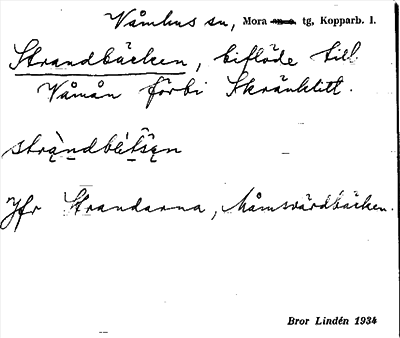 Våmhus sn, Mora tg, Kopparb. l.
Strandbäcken, biflöde till
Våmån förbi Skränklitt.
stràndblétsen
Jfr Strandarna, Måmsvärdbäcken.
Bror Lindén 1934